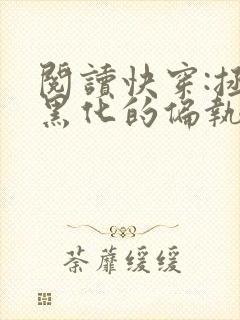 閱讀快穿:拯
黑化的偏執
荼蘼緩緩